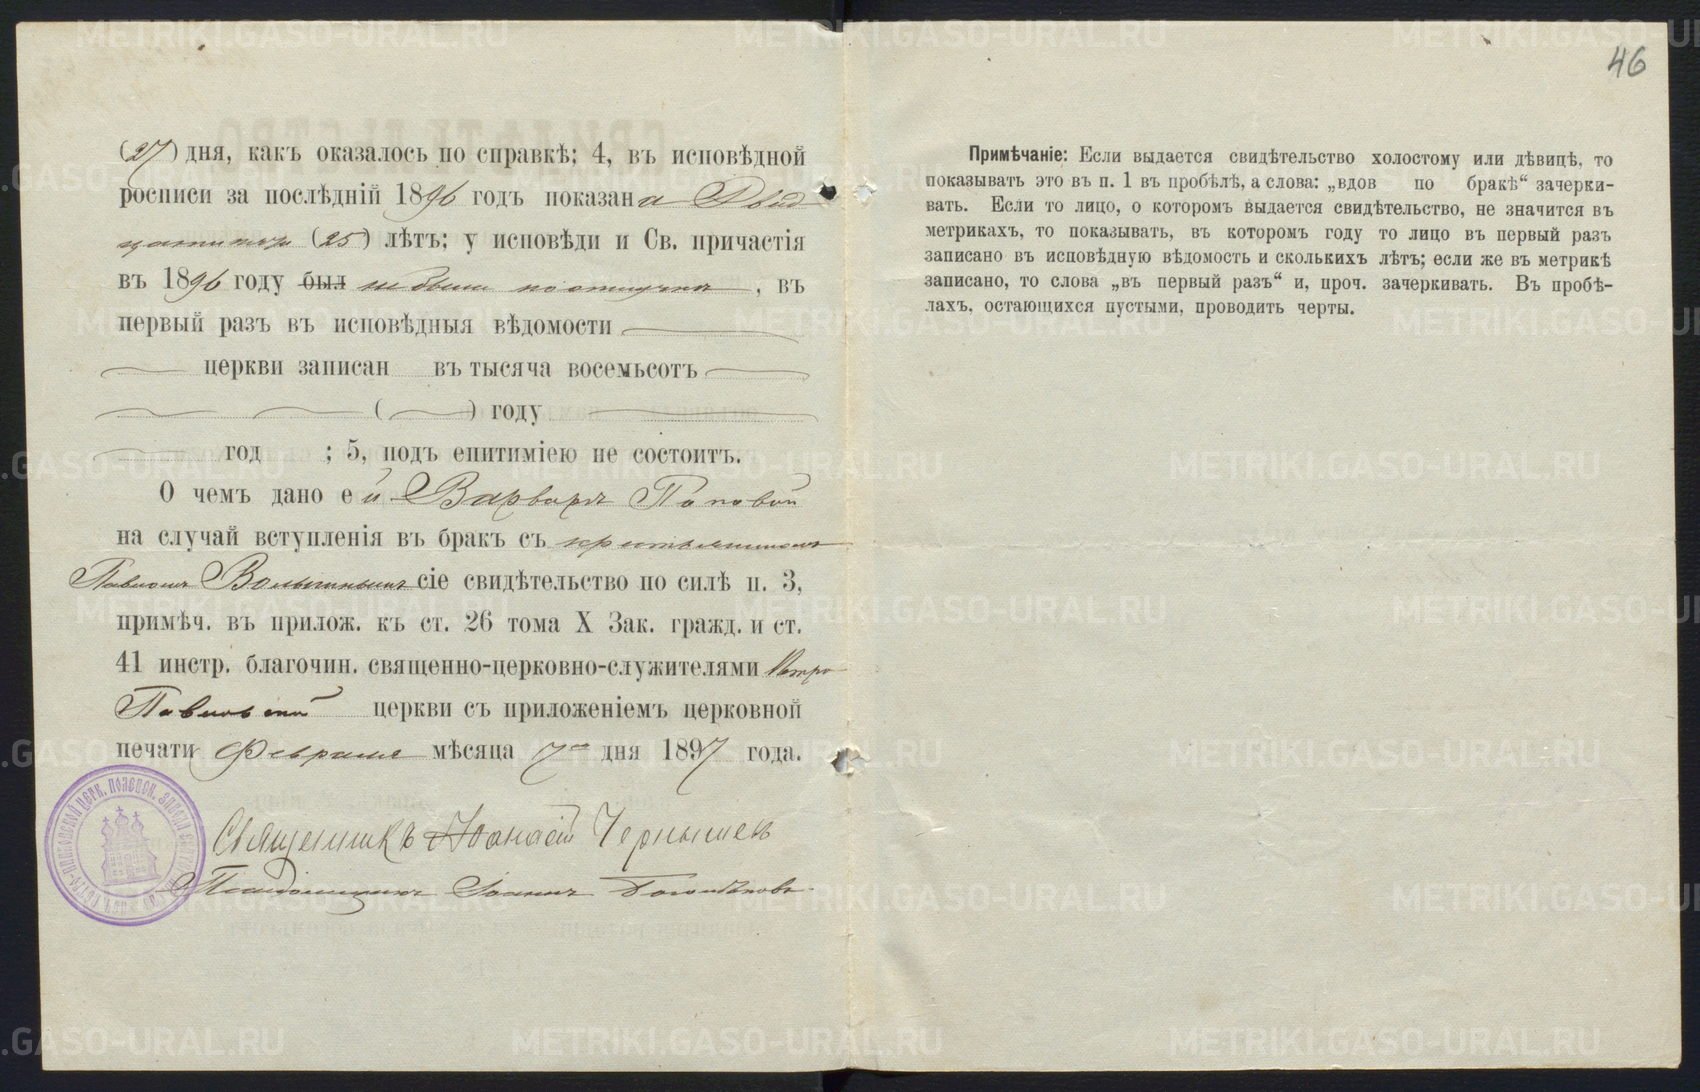 46
(27) дня, какъ оказалось по справкѣ; 4, въ исповѣдной
росписи за послѣдній 1896 годъ показана Двад
цати пяти (25) лѣтъ; у исповѣди и Св. причастія
въ 1896 году был не была по отлучкѣ, въ
первый разъ въ исповѣдныя вѣдомости
церкви записан въ тысяча восемьсотъ
( ) году
год ; 5, подъ епитиміею не состоитъ.
О чемъ дано ей Варварѣ Поповой
на случай вступленія въ бракъ съ крестьяниномъ
Павломъ сіе свидѣтельство по силѣ п. 3,
примѣч. въ прилож. къ ст. 26 тома X Зак. гражд. и ст.
41 инстр. благочин. священно-церковно-служителями Петро
Павловской церкви съ приложеніемъ церковной
печати Февраля мѣсяца 7го дня 1897 года.
Священникъ Аѳанасій Чернышев
Псаломщикъ Іоаннъ
ПЕТРО-ПАВЛОВСКОЙ ЦЕРК. ПОЛЕВСК. ЗАВОДА
Примѣчаніе: Если выдается свидѣтельство холостому или дѣвицѣ, то
показывать это въ п. 1 въ пробѣлѣ, а слова: „вдов по бракѣ“ зачерки-
вать. Если то лицо, о которомъ выдается свидѣтельство, не значится въ
метрикахъ, то показывать, въ которомъ году то лицо въ первый разъ
записано въ исповѣдную вѣдомость и сколькихъ лѣтъ; если же въ метрикѣ
записано, то слова „въ первый разъ“ и, проч. зачеркивать. Въ пробѣ-
лахъ, остающихся пустыми, проводить черты.
METRIKI.GASO-URAL.RU